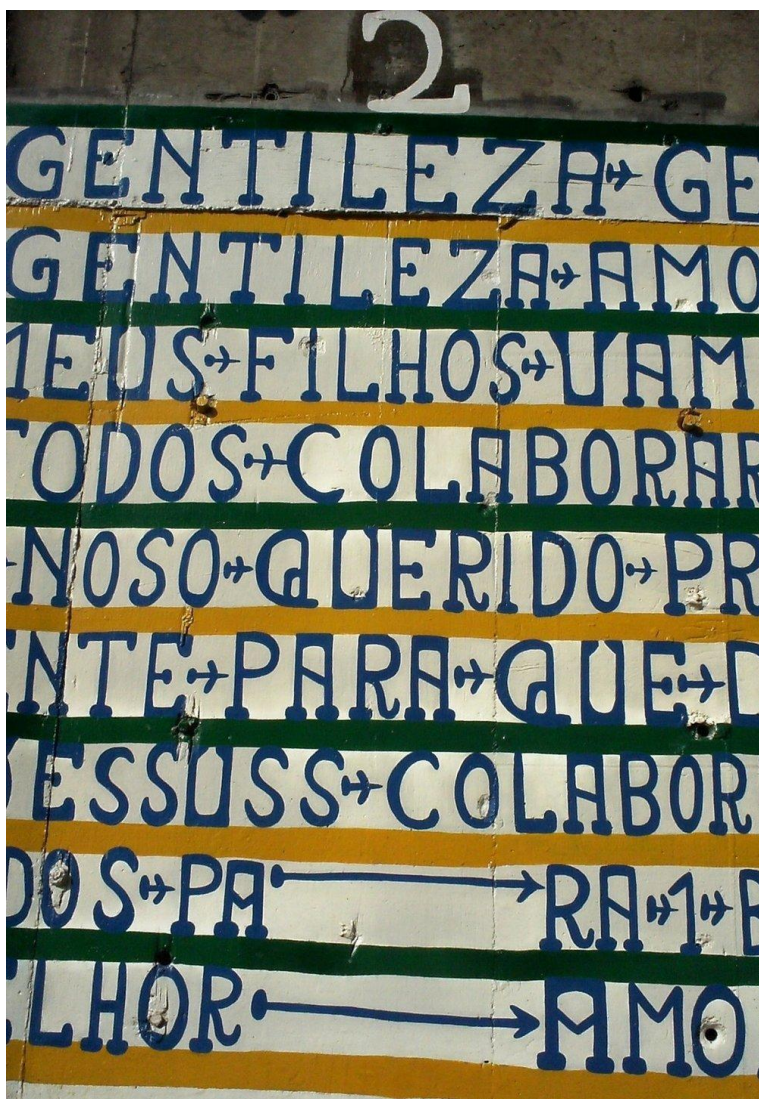 2
GENTILEZA GE
GENTILEZA AMO
MEUS FILHOS VAM
TODOS COLABORAR
NOSO QUERIDO PR
NTE PARA QUE D
JESSUSS COLABOR
DOS PA RA 1 B
LHOR AMO